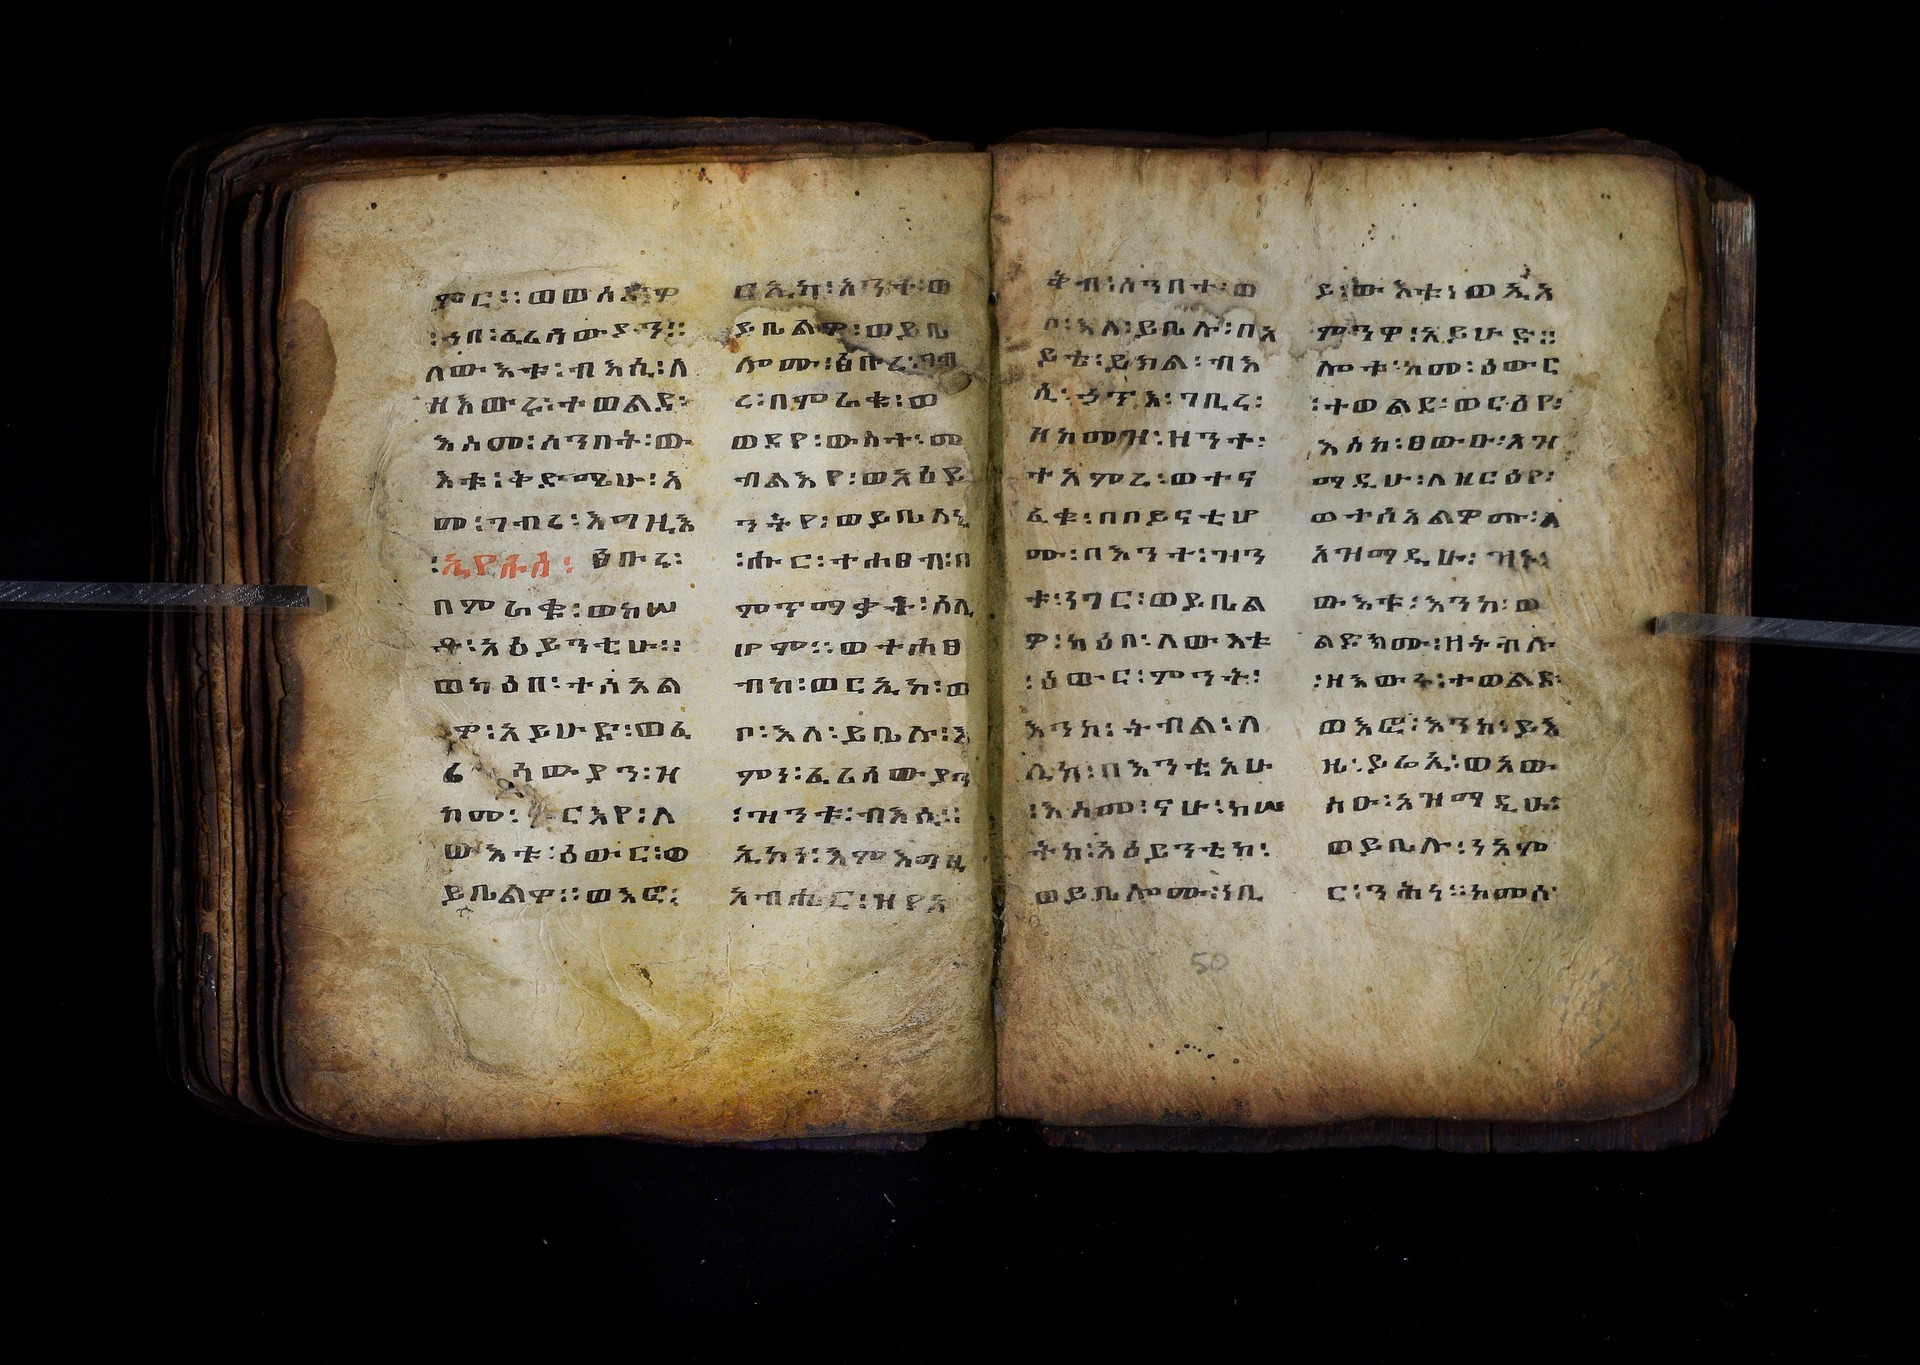 ምር፡፡ወወሰድዎ
፡ኀበ፡ፈሪሳውያን፡፡
ለውእቱ፡ብእሲ፡ለ
ዘእውሩ፡ተወልደ፡
እስመ፡ሰንበት፡ው
እቱ፡ቅድሜሁ፡አ
መ፡ገብረ፡እግዚእ
፡ኢየሱስ፡ፅቡረ፡
በምራቁ፡ወከሠ
ቶ፡አዕይንቲሁ፡፡
ወካዕበ፡ተስእል
ዎ፡አይሁድ፡ወፈ
ሪ ሳውያን፡ዝ
ከመ፡ ርእየ፡ለ
ውእቱ፡ዕውር፡ወ
ይቤልዎ፡፡ወእፎ፡
ርኢከ፡አንተ፡ወ
ይቤልዎ፡ወይቤ
ሎሙ፡ፅቡረ፡ገብ
ረ፡በምራቁ፡ወ
ወደየ፡ውስተ፡መ
ብልእየ፡ወአዕይ
ንትየ፡ወይቤለኒ
፡ሑር፡ተሐፀብ፡በ
ምጥማቃት፡ሰሊ
ሆም፡፡ወተሐፀ
ብኩ፡ወርኢኩ፡ወ
ቦ፡እለ፡ይቤሉ፡እ
ምነ፡ፈሪሳውያን
፡ዝንቱ፡ብእሲ፡፡
ኢኮነ፡እምእግዚ
አብሔር፡ዘየአ
ቅብ፡ሰንበተ፡ወ
ቦ፡እለ፡ይቤሉ፡በአ
ይቴ፡ይክል፡ብእ
ሲ፡ኃጥእ፡ገቢረ፡
ዘከመዝ፡ዘንተ፡
ተአምረ፡ወተና
ፈቁ፡በበይናቲሆ
ሙ፡በእንተ፡ዝን
ቱ፡ነገር፡ወይቤል
ዎ፡ካዕበ፡ለውእቱ
፡ዕውር፡ምንት፡
እንከ፡ትብል፡ለ
ሊከ፡በእንቲአሁ
፡እስመ፡ናሁ፡ከሠ
ተከ፡አዕይንቲከ፡
ወይቤሎሙ፡ነቢ
ይ፡ውእቱ፡ወኢአ
ምንዎ፡አይሁድ፡፡
ሎቱ፡እመ፡ዕውር
፡ተወልደ፡ወርዕየ፡
እስከ፡ፀውዑ፡አዝ
ማዲሁ፡ለዘርዕየ፡
ወተስእልዎሙ፡ለ
አዝማዲሁ፡ዝኑ፡
ውእቱ፡እንከ፡ወ
ልድክሙ፡ዘትብሉ
፡ዘእውሩ፡ተወልደ
ወእፎ፡እንከ፡ይእ
ዜ፡ይሬኢ፡ወአው
ሰዑ፡አዝማዲሁ፡
ወይቤሉ፡ነአም
ር፡ንሕነ፡፡ከመሰ
50